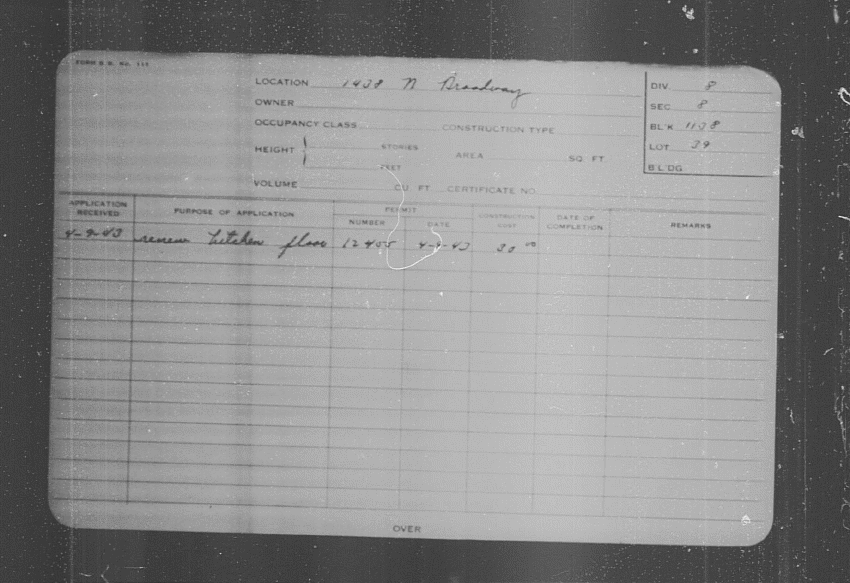 FORM B.B. No. 111
LOCATION 1438 N Broadway
OWNER
OCCUPANCY CLASS CONSTRUCTION TYPE
HEIGHT { STORIES
FEET
AREA SQ. FT
VOLUME CU. FT. CERTIFICATE NO.
DIV. 8
SEC. 8
BL'K 1138
LOT 39
B'L'DG.
APPLICATION RECEIVED PURPOSE OF APPLICATION PERMIT NUMBER DATE CONSTRUCTION COST DATE OF COMPLETION REMARKS
4-9-43 renew kitchen floor 12455 4-9-43 30 00
OVER